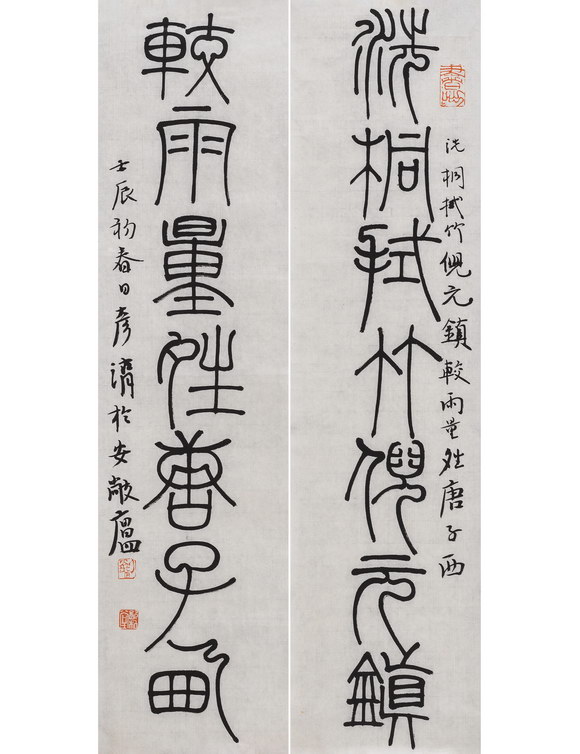 洗桐拭竹倪元鎮較雨量姓唐子西
洗桐拭竹倪元鎮
較雨量姓唐子西
壬辰初春日彥清於安敞廬